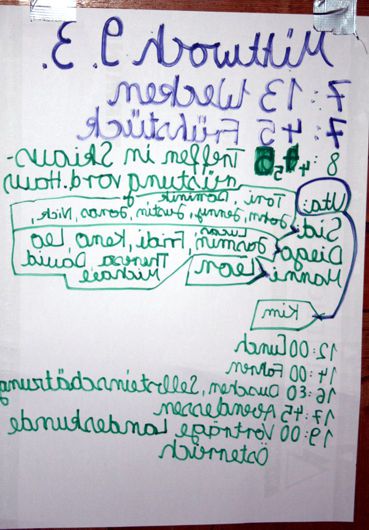 Mittwoch 9. 3.
7:13 Wecken
7:45 Frühstück
8:45 Treffen in Skiaus-
rüstung vord. Haus
Uta: Toni, Dominik
Sid: John, Jenny, Justin, Jonas, Nick,
Lucas
Diego Jasmin, Fridi, Keno, Leo
Manni: Leon Theresa David
Michael
Kim
12:00 Lunch
14:00 Fahren
16:30 Duschen, Selbsteinschätzung
17:45 Abendessen
19:00 Vorträge Landeskunde
Österreich